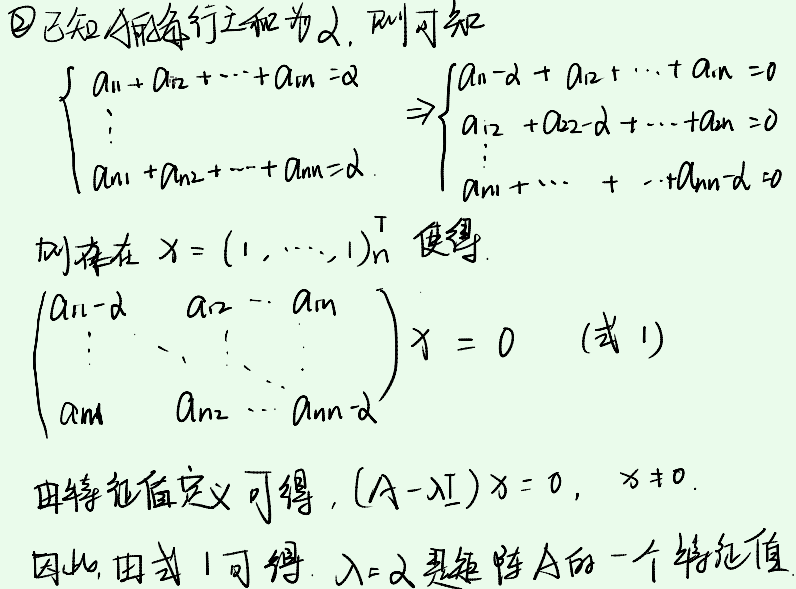 ② 已知A的每行之和为α, 则可知
{ a11 + a12 + ··· + a1n = α
⋮
an1 + an2 + ··· + ann = α.
⇒ { a11-α + a12 + ··· + a1n = 0
a12 + a22-α + ··· + a2n = 0
⋮
an1 + ··· + ··+ann-α = 0
则存在 x = (1, ···, 1)ₙᵀ 使得.
( a11-α a12 ··· a1n
⋮ ⋱ ⋮ ⋱ ⋮
an1 an2 ··· ann-α ) x = 0 (式 1)
由特征值定义可得, (A-λI)x = 0, x≠0.
因此, 由式1可得. λ=α是矩阵A的一个特征值.